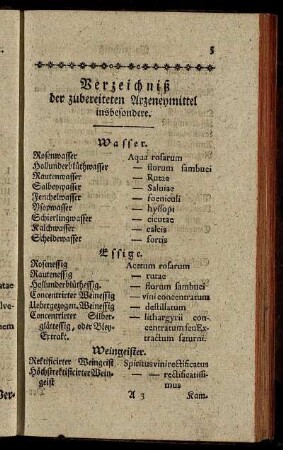 5
Verzeichniß
der zubereiteten Arzeneymittel
insbesondere.
Wasser.
Rosenwasser Aqua rosarum
Hollunderblüthwasser — florum sambuci
Rautenwasser — Rutae
Salbeywasser — Saluiae
Fenchelwasser — foeniculi
Ysopwasser — hyssopi
Schierlingwasser — cicutae
Kalchwasser — calcis
Scheidewasser — fortis
Essige.
Rosenessig Acetum rosarum
Rautenessig — rutae
Hollunderblüthessig. — florum sambuci
Concentrirter Weinessig — vini concentratum
Uebergezogen. Weinessig — destillatum
Concentrirter Silber- — lithargyrii con-
glättessig, oder Bley- centratum seu Ex-
Extrakt. tractum saturni.
Weingeister.
Rektificirter Weingeist Spiritus vini rectificatus
Höchstrektificirter Wein- — — rectificatissi-
geist mus
A 3 Kam-